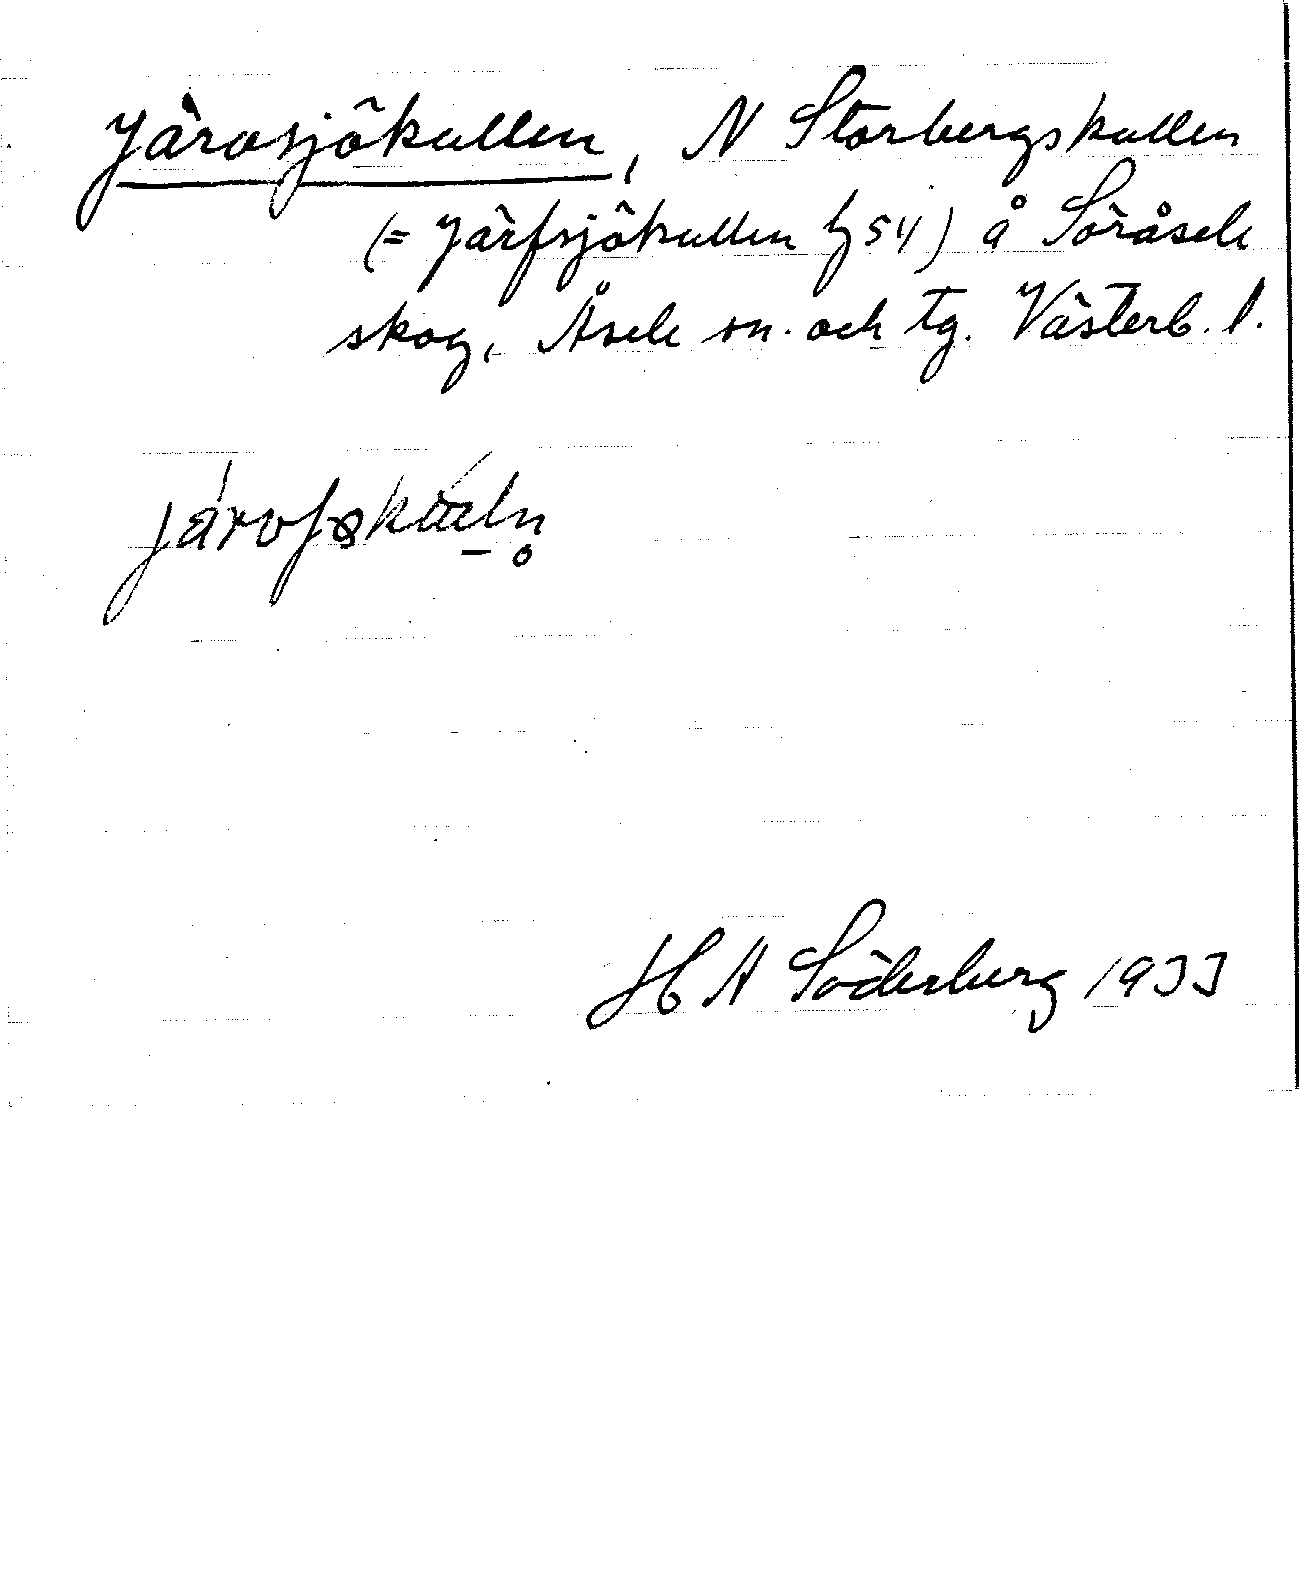 Järvsjökullen, N Storbergskullen
(= Järfsjökullen § 54) å Söråsele
skog, Åsele sn. och tg. Västerb. l.
H A Söderberg 1933